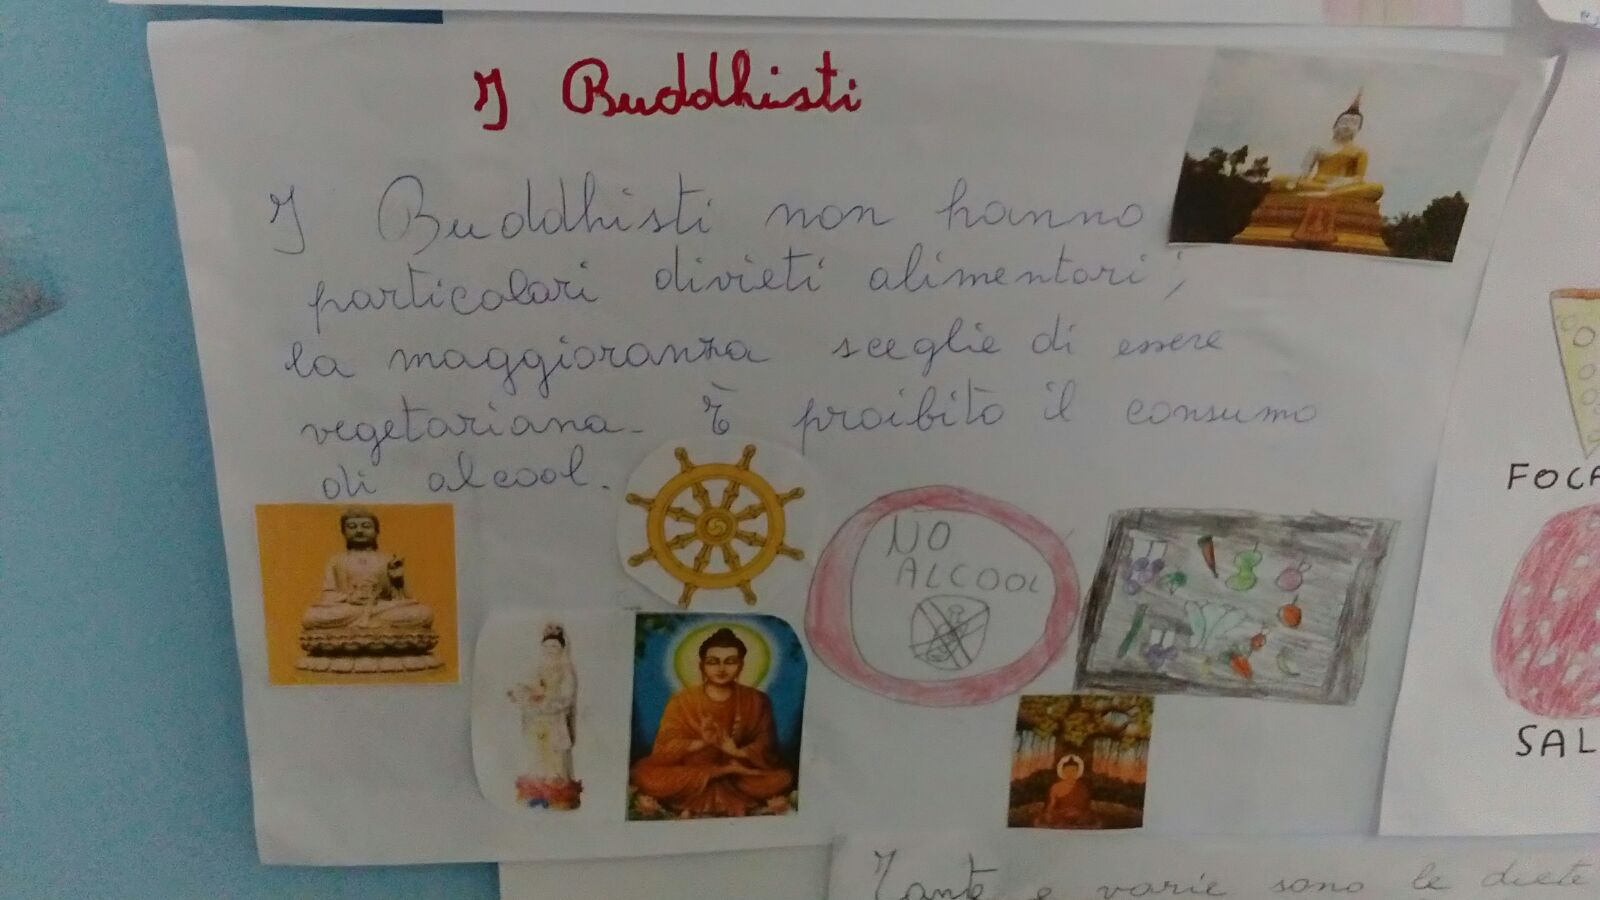 I Buddhisti
I Buddhisti non hanno
particolari divieti alimentari;
la maggioranza sceglie di essere
vegetariana. È proibito il consumo
di alcool.
NO
ALCOOL
FOCA
SAL
Tante e varie sono le diete